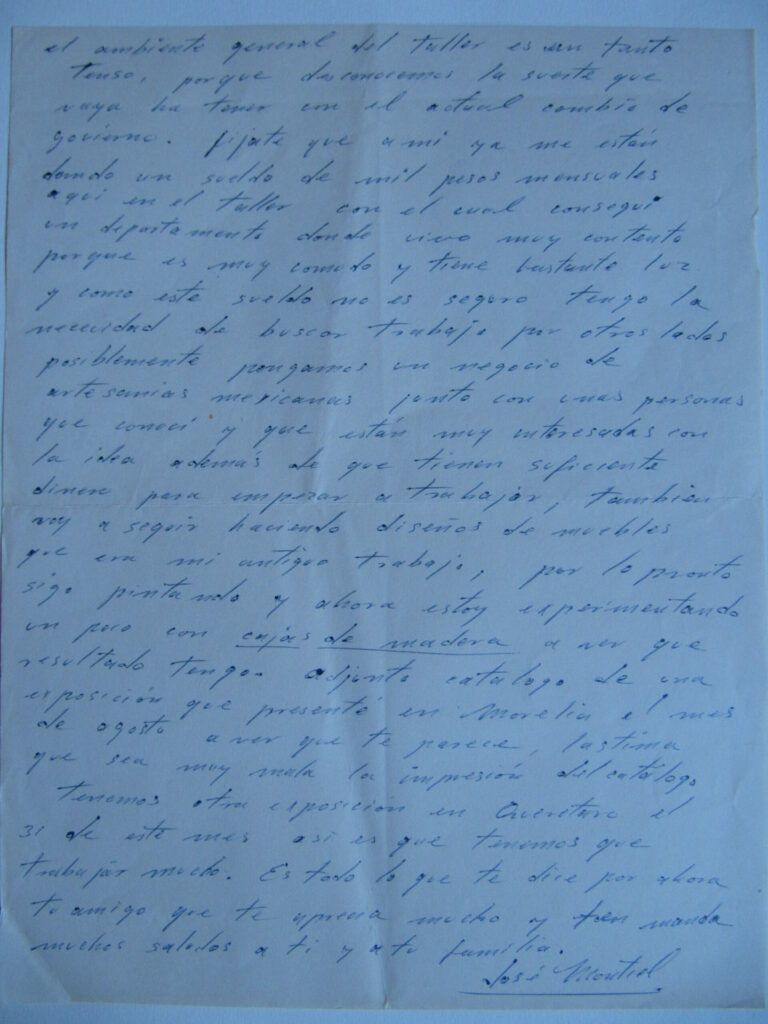 el ambiente general del taller es un tanto
tenso, porque desconocemos la suerte que
vaya ha tener con el actual cambio de
govierno. fijate que a mi ya me están
dando un sueldo de mil pesos mensuales
aqui en el taller con el cual conseguí
un departamento donde vivo muy contento
porque es muy comodo y tiene bastante luz
y como este sueldo no es seguro tengo la
nececidad de buscar trabajo por otros lados
posiblemente pongamos un negocio de
artesanias mexicanas junto con unas personas
que conocí y que están muy interesadas con
la idea además de que tienen suficiente
dinero para empezar a trabajar, también
voy a seguir haciendo diseños de muebles
que era mi antiguo trabajo, por lo pronto
sigo pintando y ahora estoy experimentando
un poco con cajas de madera a ver que
resultado tengo. adjunto catálogo de una
exposición que presenté en Morelia el mes
de agosto a ver que te parece, lastima
que sea muy mala la impresión del catálogo
Tenemos otra exposición en Querétaro el
31 de este mes asi es que tenemos que
trabajar mucho. Es todo lo que te dice por ahora
tu amigo que te aprecia mucho y manda
muchos saludos a ti y a tu familia.
José Montiel